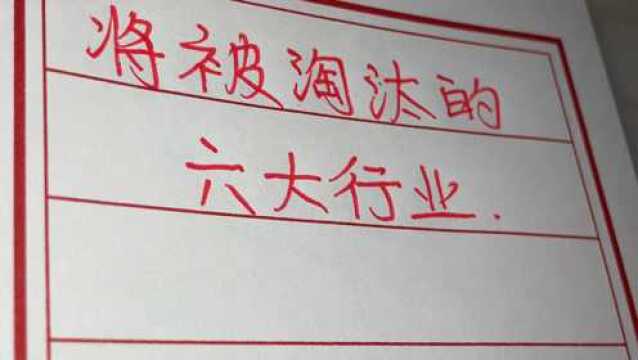 将被淘汰的
六大行业.